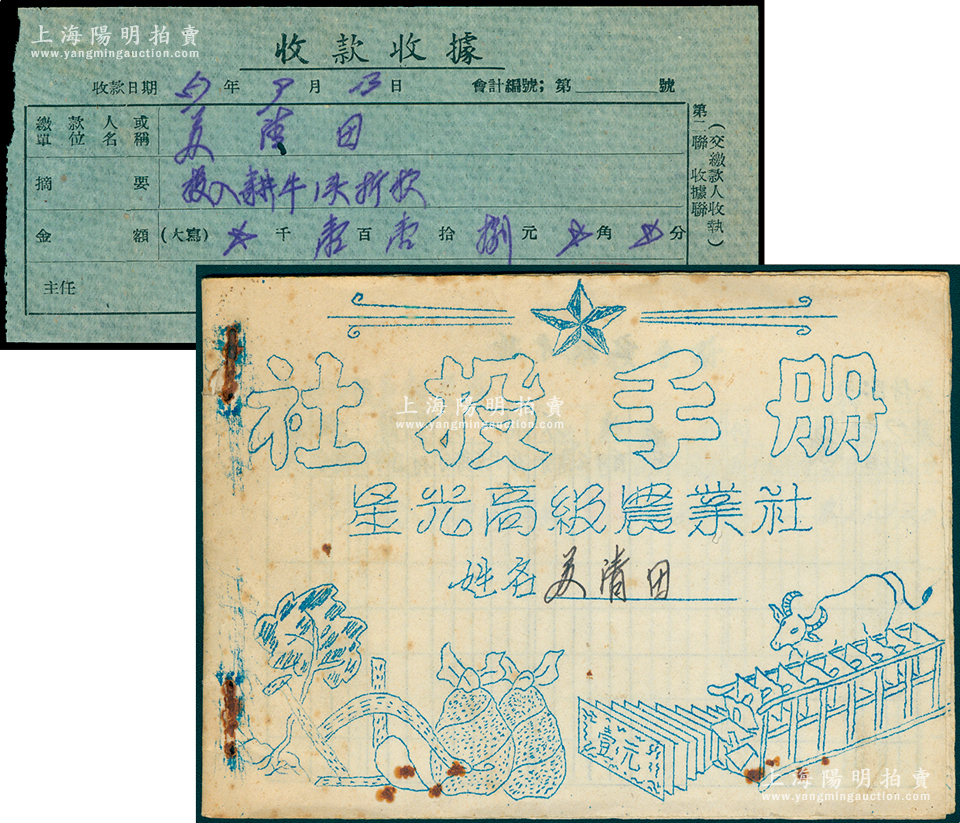 上海陽明拍賣
www.yangmingauction.com
收款收據
收款日期 57年 月 13日 會計編號：第 號
繳款人或單位名稱 姜清田
摘要 投入耕牛1头折款
金額 (大寫) ㄨ千壹百壹拾捌元ㄨ角ㄨ分
主任
第二聯 收據聯
(交繳款人收執)
社投手册
上海陽明拍賣
www.yangmingauction.com
星光高級農業社
姓名 姜清田
壹元
上海陽明拍賣
www.yangmingauction.com